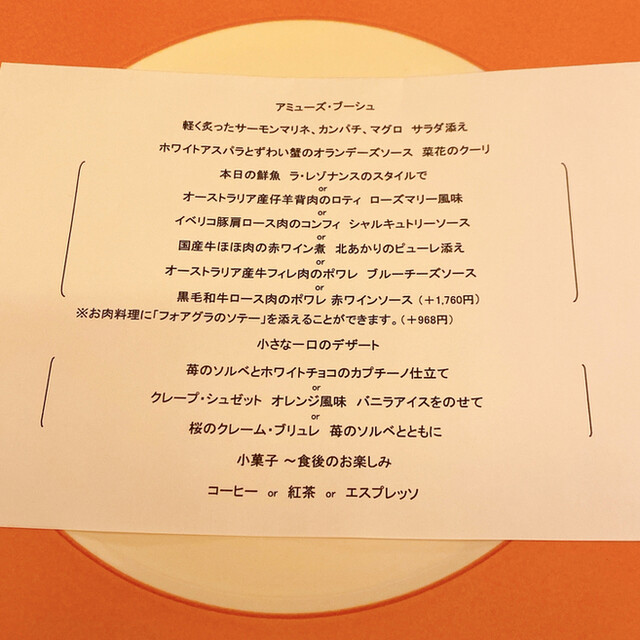 アミューズ・ブーシュ
軽く炙ったサーモンマリネ、カンパチ、マグロ サラダ添え
ホワイトアスパラとずわい蟹のオランデーズソース 菜花のクーリ
本日の鮮魚 ラ・レゾナンスのスタイルで
or
オーストラリア産仔羊背肉のロティ ローズマリー風味
or
イベリコ豚肩ロース肉のコンフィ シャルキュトリーソース
or
国産牛ほほ肉の赤ワイン煮 北あかりのピューレ添え
or
オーストラリア産牛フィレ肉のポワレ ブルーチーズソース
or
黒毛和牛ロース肉のポワレ 赤ワインソース (+1,760円)
※お肉料理に「フォアグラのソテー」を添えることができます。(+968円)
小さな一口のデザート
苺のソルベとホワイトチョコのカプチーノ仕立て
or
クレープ・シュゼット オレンジ風味 バニラアイスをのせて
or
桜のクレーム・ブリュレ 苺のソルベとともに
小菓子 ～食後のお楽しみ
コーヒー or 紅茶 or エスプレッソ